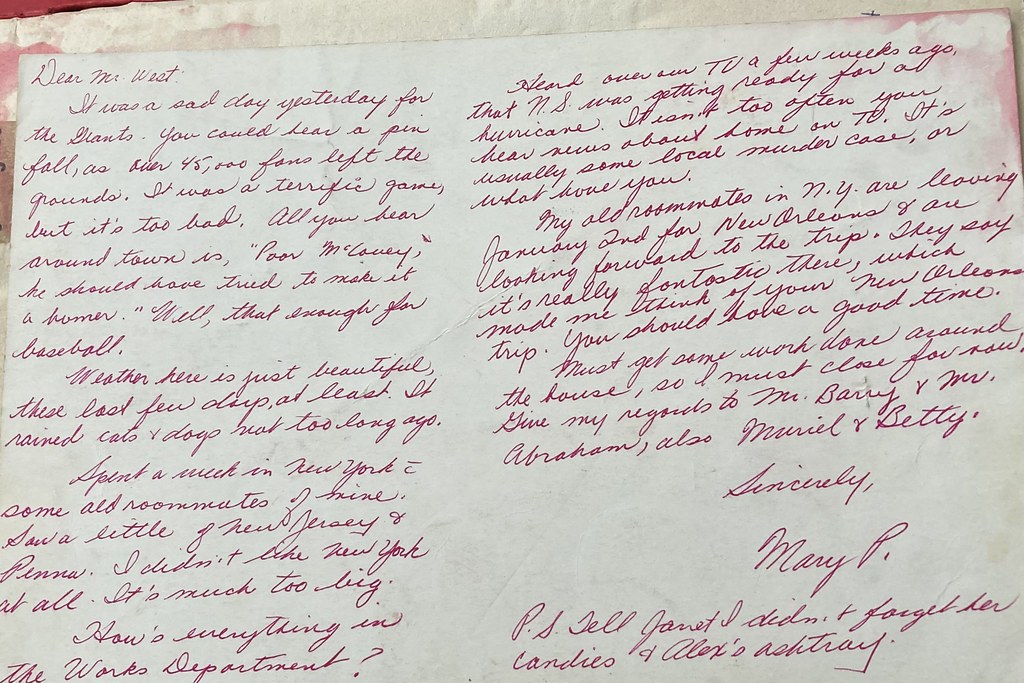 Dear Mr. West:
It was a sad day yesterday for
the Giants. You could hear a pin
fall, as over 45,000 fans left the
grounds. It was a terrific game,
but it's too bad. All you hear
around town is, "Poor McCovey,
he should have tried to make it
a homer." Well, that enough for
baseball.
Weather here is just beautiful,
these last few days, at least. It
rained cats & dogs not too long ago.
Spent a week in New York c̄
some old roommates of mine.
Saw a little of New Jersey &
Penna. I didn't like New York
at all. It's much too big.
How's everything in
the Works Department?
Heard over our TV a few weeks ago,
that N.S. was getting ready for a
hurricane. It isn't too often you
hear news about home on TV. It's
usually some local murder case, or
what have you.
My old roommates in N.Y. are leaving
January 2nd for New Orleans & are
looking forward to the trip. They say
it's really fantastic there, which
made me think of your New Orleans
trip. You should have a good time.
Must get some work done around
the house, so I must close for now,
Give my regards to Mr. Barry & Mr.
Abraham, also Muriel & Betty.
Sincerely,
Mary P.
P.S. Tell Janet I didn't forget her
candies & Alex's ashtray.